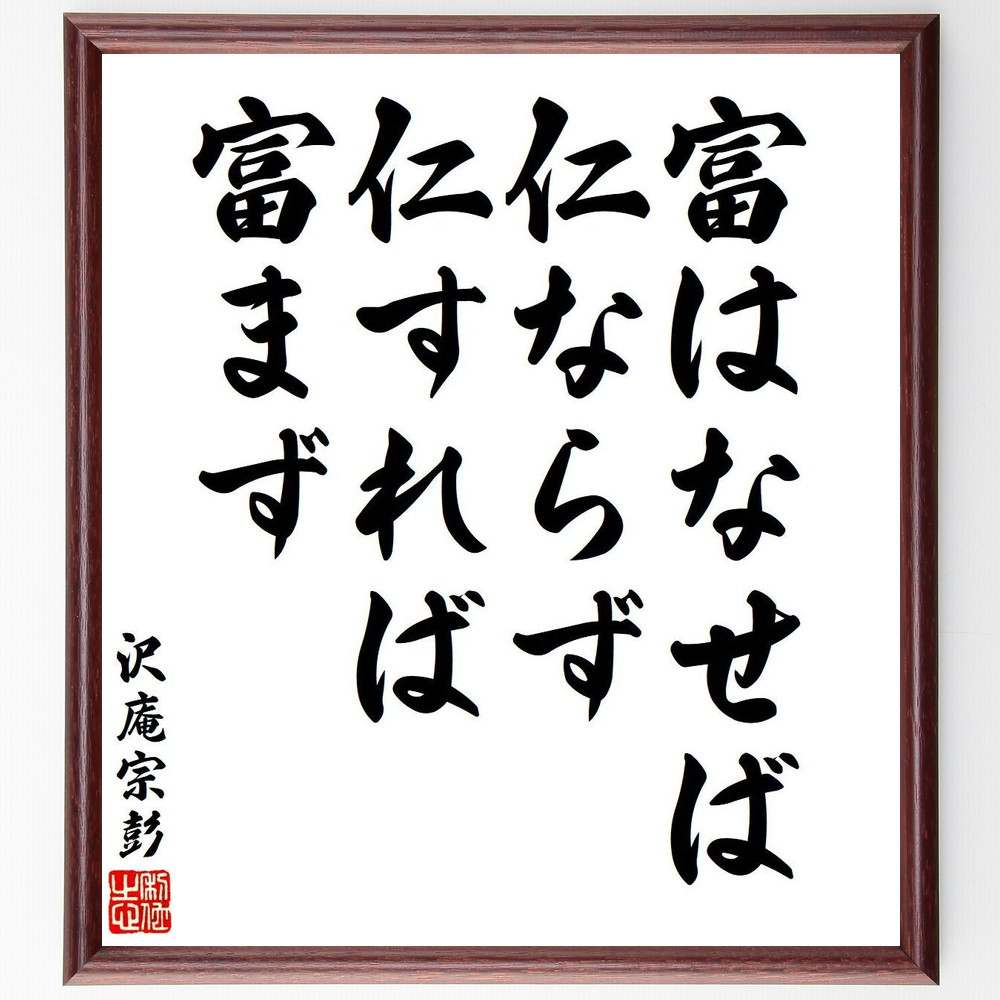 富はなせば
仁ならず
仁すれば
富まず
沢庵宗彭